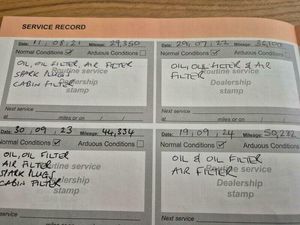 SERVICE RECORD
Date: 11.08.21 Mileage: 29,350
Normal Conditions ☑ Arduous Conditions ☐
OIL, OIL FILTER, AIR FILTER
SPARK PLUGS
CABIN FILTER
Routine service
Dealership
stamp
Next service
at miles or on
Date: 29.07.22 Mileage:
Normal Conditions ☑ Arduous Conditions ☐
OIL, OIL FILTER & AIR
FILTER
Routine service
Dealership
stamp
Next service
at miles or on
Date: 30.09.23 Mileage: 44,334
Normal Conditions ☑ Arduous Conditions ☐
OIL, OIL FILTER
AIR FILTER
SPARK PLUGS
CABIN FILTER
Routine service
Dealership
stamp
Next service
Date: 19.09.24 Mileage: 50,232
Normal Conditions ☑ Arduous Conditions ☐
OIL & OIL FILTER
AIR FILTER
Routine service
Dealership
stamp
Next service